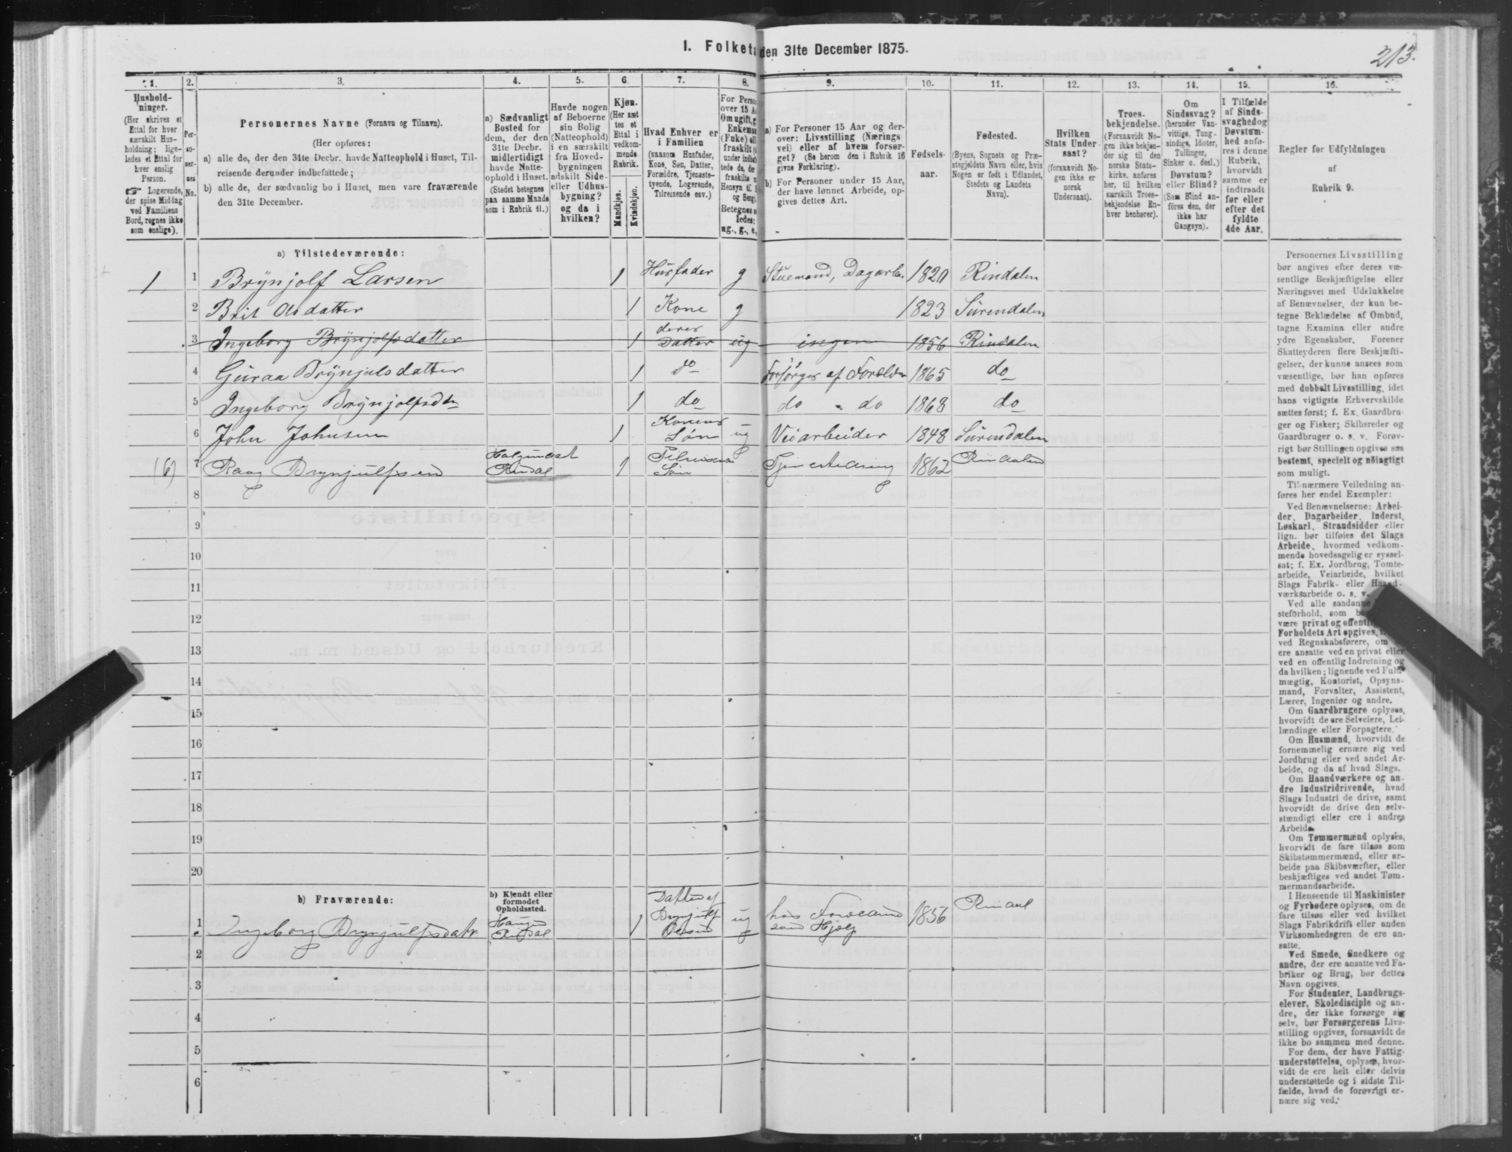 1. Folketa
den 31te December 1875.
213.
1.
2.
3.
4.
5.
6.
7.
8.
9.
10.
11.
12.
13.
14.
15.
16.
Hushold-
ninger.
(Her skrives et
Ettal for hver
særskilt Hus-
holdning; lige-
ledes et Ettal for
hver enslig
Person.
☞ Logerende,
der spise Middag
ved Familiens
Bord, regnes ikke
som enslige).
Per-
so-
ner-
nes
No.
Personernes Navne (Fornavn og Tilnavn).
(Her opføres:
a) alle de, der den 31te Decbr. havde Natteophold i Huset, Til-
reisende derunder indbefattede;
b) alle de, der sædvanlig bo i Huset, men vare fraværende
den 31te December.
a) Sædvanligt
Bosted for
dem, der den
31te Decbr.
midlertidigt
havde Natte-
ophold i Huset.
(Stedet betegnes
paa samme Maade
som i Rubrik 11.)
Havde nogen
af Beboerne
sin Bolig
(Natteophold)
i en særskilt
fra Hoved-
bygningen
adskilt Side-
eller Udhus-
bygning?
og da i
hvilken?
Kjøn.
(Her sæt-
tes et
Ettal i
vedkom-
mende
Rubrik.
Mandkjøn.
Kvindekjøn.
Hvad Enhver er
i Familien
(saasom Husfader,
Kone, Søn, Datter,
Forældre, Tjeneste-
tyende, Logerende,
Tilreisende osv.)
For Perso
over 15 A
Om ugift, g
Enkema
(Fuke) ell
fraskilt
Betegnes s
ledes:
ug., g., e.,
a) For Personer 15 Aar og der-
over: Livsstilling (Nærings
vei) eller af hvem forsør-
get? (Se herom den i Rubrik 16
givne Forklaring).
b) For Personer under 15 Aar,
der have lønnet Arbeide, op-
gives dettes Art.
Fødsels-
aar.
Fødested.
(Byens, Sognets og Præ-
stegjeldets Navn eller, hvis
Nogen er født i Udlandet,
Stedets og Landets
Navn).
Hvilken
Stats Under-
saat?
(forsaavidt No-
gen ikke er
norsk
Undersaat).
Troes-
bekjendelse.
(Forsaavidt No-
gen ikke bekjen-
der sig til den
norske Stats-
kirke, anføres
her, til hvilken
særskilt Troes-
bekjendelse En-
hver henhører).
Om
Sindssvag?
(herunder Van-
vittige, Tung-
sindige, Idioter,
Tullinger,
Sinker o. desl.)
Døvstum?
eller Blind?
(Som Blind an-
føres den, der
ikke har
Gangsyn).
I Tilfælde
af Sinds-
svaghed og
Døvstum-
hed anfø-
res i denne
Rubrik,
hvorvidt
samme er
indtraadt
før eller
efter det
fyldte
4de Aar.
Regler for Udfyldningen
af
Rubrik 9.
a) Tilstedeværende:
1 1 Brÿnjolf Larsen 1 Husfader g Stuemand, Dagarb. 1820 Rindalen
2 Brit Olsdatter 1 Kone g 1823 Surendalen
3 Ingeborg Brÿnjolfsdatter 1 deres Datter ug ingen 1856 Rindalen
4 Guraa Brÿnjulsdatter 1 do Forsørges af Forældr 1865 do
5 Ingeborg Brÿnjolfsdtr 1 do do " do 1868 do
6 John Johnsen 1 Konens Søn ug Veiarbeider 1848 Surendalen
(6) 7 Brynjulfsen Rindal 1 Søn 1862 Rindalen
8
9
10
11
12
13
14
15
16
17
18
19
20
b) Fraværende:
b) Kjendt eller
formodet
Opholdssted.
1 Ingeborg Brynjulfsdatr Haugen Rindal 1 Datter af Brynjulf ug hos Forældrene som Hjelp 1856 Rindal
2
3
4
5
6
Personernes Livsstilling
bør angives efter deres væ-
sentlige Beskjæftigelse eller
Næringsvei med Udelukkelse
af Benævnelser, der kun be-
tegne Beklædelse af Ombud,
tagne Examina eller andre
ydre Egenskaber. Forener
Skatteyderen flere Beskjæfti-
gelser, der kunne ansees som
væsentlige, bør han opføres
med dobbelt Livsstilling, idet
hans vigtigste Erhvervskilde
sættes først; f. Ex. Gaardbru-
ger og Fisker; Skibsreder og
Gaardbruger o. s. v. Forøv-
rigt bør Stillingen opgives saa
bestemt, specielt og nöiagtigt
som muligt.
Til nærmere Veiledning an-
føres her endel Exempler:
Ved Benævnelserne: Arbei-
der, Dagarbeider, Inderst,
Løskarl, Strandsidder eller
lign. bør tilføies det Slags
Arbeide, hvormed vedkom-
mende hovedsagelig er syssel-
sat; f. Ex. Jordbrug, Tomte-
arbeide, Veiarbeide, hvilket
Slags Fabrik- eller Haand-
værksarbeide o. s. v.
Ved alle saadanne
steforhold, som
være privat og offent
Forholdets Art opgives,
ved Regnskabsførere, om
ere ansatte ved en privat eller
ved en offentlig Indretning og
da hvilken; lignende ved Fuld-
mægtig, Kontorist, Opsyns-
mand, Forvalter, Assistent,
Lærer, Ingeniør og andre.
Om Gaardbrugere oplyses,
hvorvidt de ere Selveiere, Lei-
lændinge eller Forpagtere.
Om Husmænd, hvorvidt de
fornemmelig ernære sig ved
Jordbrug eller ved andet Ar-
beide, og da af hvad Slags.
Om Haandværkere og an-
dre industridrivende, hvad
Slags Industri de drive, samt
hvorvidt de drive den selv-
stændigt eller ere i andres
Arbeide.
Om Tømmermænd oplyses,
hvorvidt de fare tilsøs som
Skibstømmermænd, eller ar-
beide paa Skibsværfter, eller
beskjæftiges ved andet Tøm-
mermandsarbeide.
I Henseende til Maskinister
og Fyrbødere oplyses, om de
fare tilsøs eller ved hvilket
Slags Fabrikdrift eller anden
Virksomhedsgren de ere an-
satte.
Ved Smede, Snedkere og
andre, der ere ansatte ved Fa-
briker og Brug, bør dettes
Navn opgives.
For Studenter, Landbrugs-
elever, Skoledisciple og an-
dre, der ikke forsørge sig
selv, bør Forsørgerens Livs-
stilling opgives, forsaavidt de
ikke bo sammen med denne.
For dem, der have Fattig-
understøttelse, oplyses, hvor-
vidt de ere helt eller delvis
understøttede og i sidste Til-
fælde, hvad de forøvrigt er-
nære sig ved.